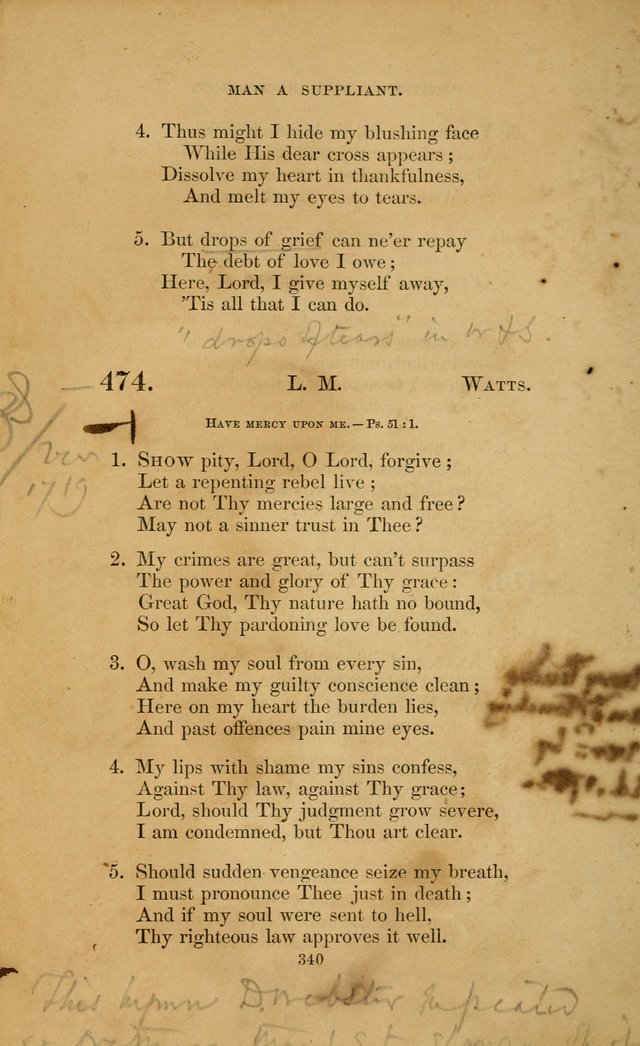 MAN A SUPPLIANT.
4. Thus might I hide my blushing face
While His dear cross appears;
Dissolve my heart in thankfulness,
And melt my eyes to tears.
5. But drops of grief can ne'er repay
The debt of love I owe;
Here, Lord, I give myself away,
'Tis all that I can do.
"drops of tears" in
474. L. M. WATTS.
HAVE MERCY UPON ME.—Ps. 51:1.
1719
1. SHOW pity, Lord, O Lord, forgive;
Let a repenting rebel live;
Are not Thy mercies large and free?
May not a sinner trust in Thee?
2. My crimes are great, but can't surpass
The power and glory of Thy grace:
Great God, Thy nature hath no bound,
So let Thy pardoning love be found.
3. O, wash my soul from every sin,
And make my guilty conscience clean;
Here on my heart the burden lies,
And past offences pain mine eyes.
4. My lips with shame my sins confess,
Against Thy law, against Thy grace;
Lord, should Thy judgment grow severe,
I am condemned, but Thou art clear.
5. Should sudden vengeance seize my breath,
I must pronounce Thee just in death;
And if my soul were sent to hell,
Thy righteous law approves it well.
340
This hymn D. Webster repeated